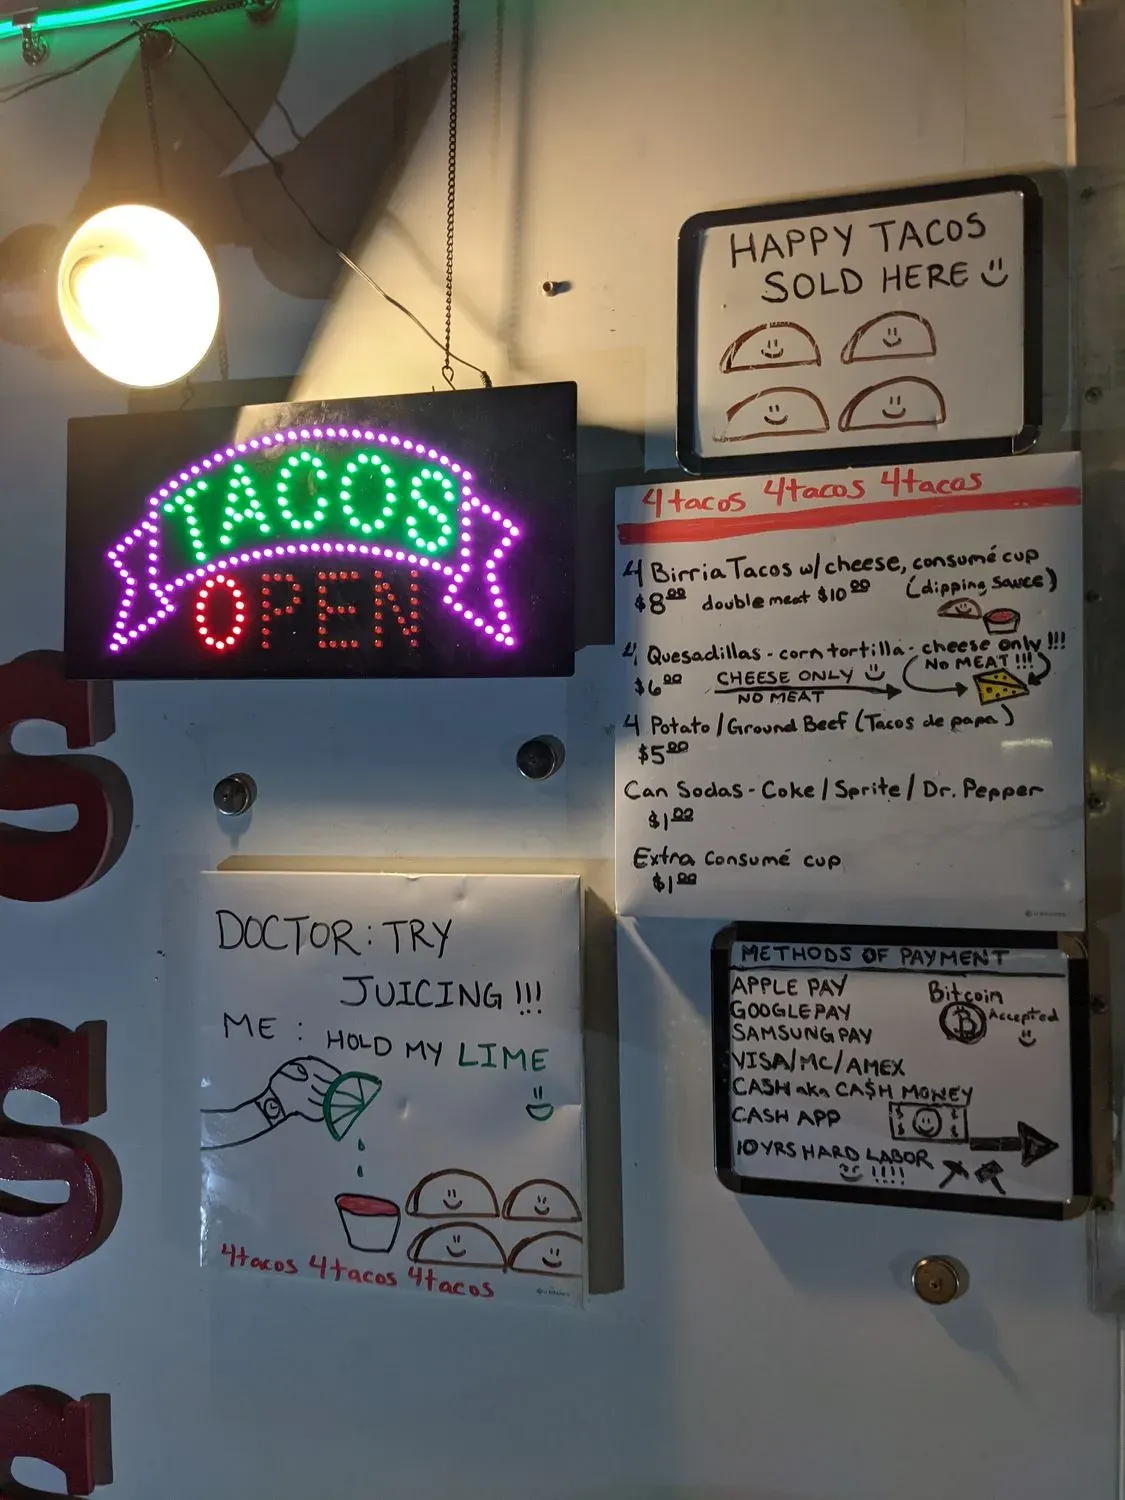 TACOS
OPEN
HAPPY TACOS
SOLD HERE
4tacos 4tacos 4tacos
4 Birria Tacos w/cheese, consumé cup
$8.00 double meat $10.00 (dipping sauce)
4 Quesadillas - corn tortilla - cheese only!!!
$6.00 CHEESE ONLY NO MEAT!!!
NO MEAT
4 Potato/Ground Beef (Tacos de papa)
$5.00
Can Sodas - Coke/Sprite/Dr. Pepper
$1.00
Extra Consumé cup
$1.00
DOCTOR: TRY
JUICING!!!
ME: HOLD MY LIME
4tacos 4tacos 4tacos
METHODS OF PAYMENT
APPLE PAY
GOOGLE PAY
SAMSUNG PAY
VISA/MC/AMEX
CASH aka CA$H MONEY
CASH APP
10 YRS HARD LABOR
!!!!
Bitcoin
B Accepted
$ $
$ $
S
S